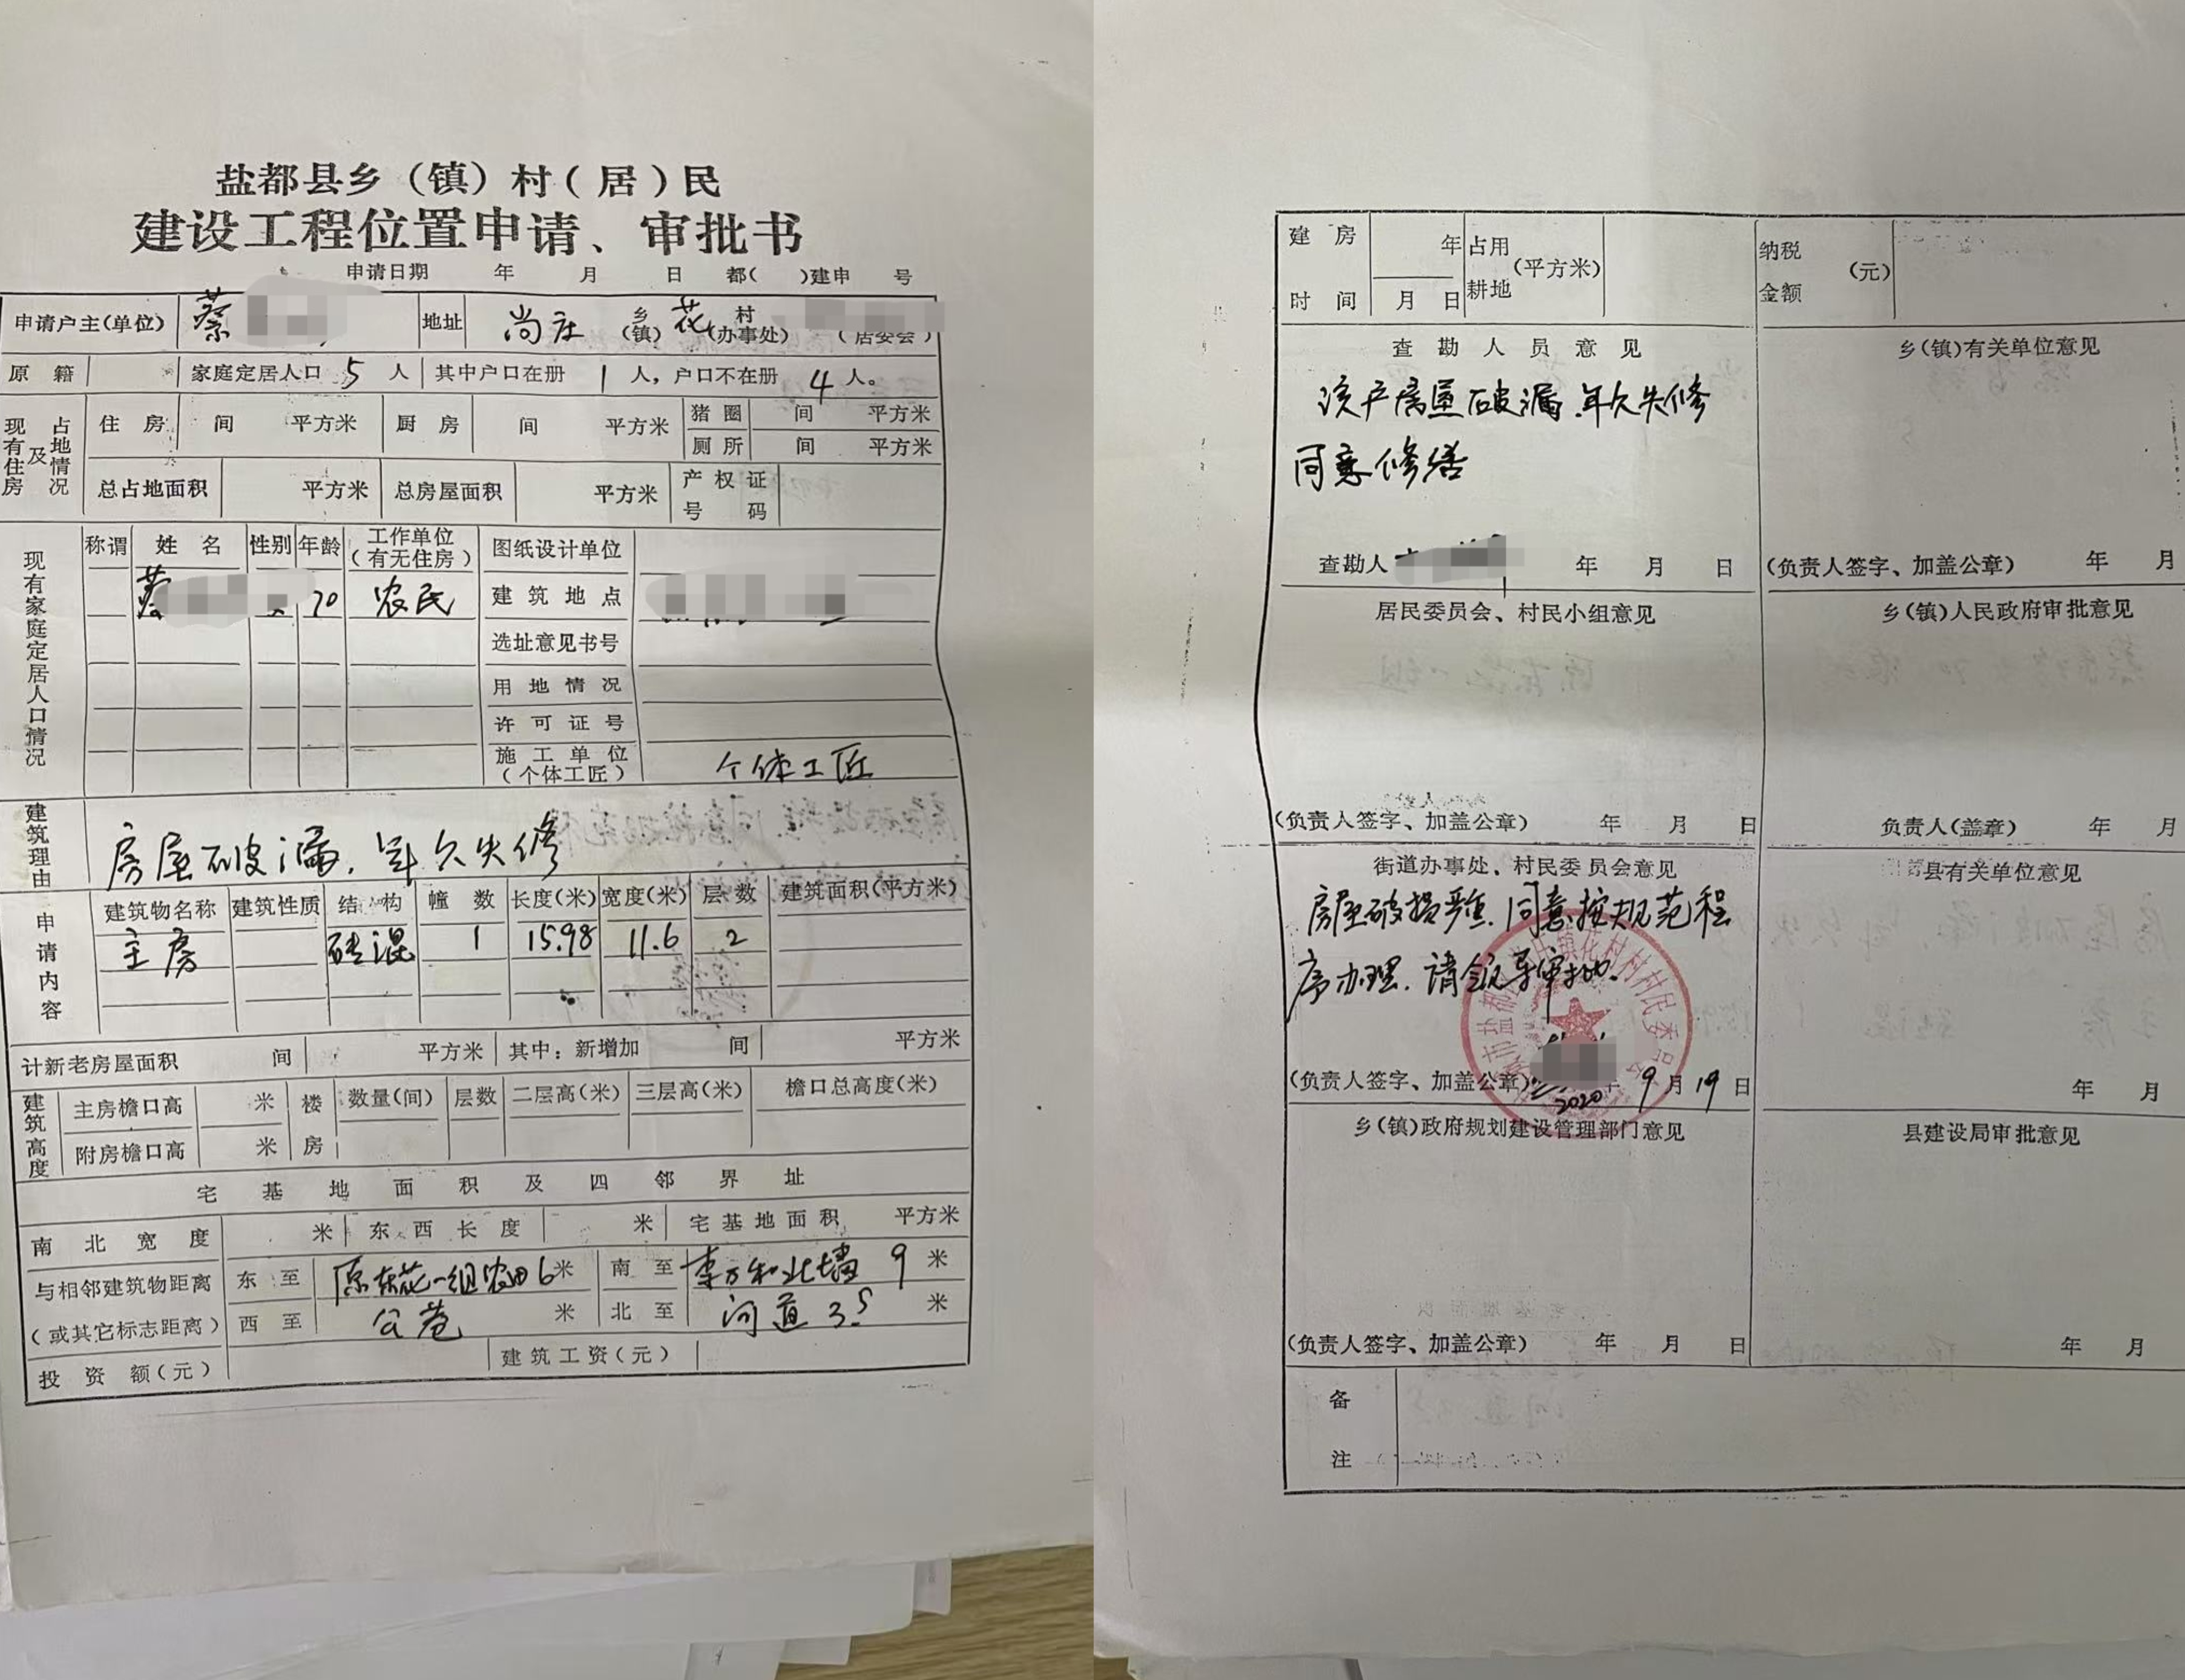 盐都县乡（镇）村（居）民
建设工程位置申请、审批书
申请日期 年 月 日 都( )建申 号
申请户主(单位) 蔡 地址 尚庄 乡(镇) 花 村(办事处) (居委会)
原籍 家庭定居人口 5 人 其中户口在册 1 人，户口不在册 4 人。
现有住房及占地情况 住房 间 平方米 厨房 间 平方米 猪圈 间 平方米
厕所 间 平方米
总占地面积 平方米 总房屋面积 平方米 产权证号码
现有家庭定居人口情况 称谓 姓名 性别 年龄 工作单位(有无住房) 图纸设计单位
蔡 女 70 农民 建筑地点
选址意见书号
用地情况
许可证号
施工单位(个体工匠) 个体工匠
建筑理由 房屋破漏，年久失修
申请内容 建筑物名称 建筑性质 结构 幢数 长度(米) 宽度(米) 层数 建筑面积(平方米)
主房 砖混 1 15.98 11.6 2
计新老房屋面积 间 平方米 其中：新增加 间 平方米
建筑高度 主房檐口高 米 楼房 数量(间) 层数 二层高(米) 三层高(米) 檐口总高度(米)
附房檐口高 米
宅基地面积及四邻界址
南北宽度 米 东西长度 米 宅基地面积 平方米
与相邻建筑物距离(或其它标志距离) 东至 原东花一组农田6米 南至 李万和北墙 9 米
西至 公巷 米 北至 河道 3.5 米
投资额(元) 建筑工资(元)
建房时间 年 月 日 占用耕地 (平方米) 纳税金额 (元)
查勘人员意见
该户房屋破漏.年久失修
同意修缮
查勘人 年 月 日
乡(镇)有关单位意见
(负责人签字、加盖公章) 年 月
居民委员会、村民小组意见
(负责人签字、加盖公章) 年 月 日
乡(镇)人民政府审批意见
负责人(盖章) 年 月
街道办事处、村民委员会意见
房屋破损严重.同意按规范程
序办理.请领导审批.
(负责人签字、加盖公章) 2020年 9月19日
县有关单位意见
年 月
乡(镇)政府规划建设管理部门意见
(负责人签字、加盖公章) 年 月 日
县建设局审批意见
年 月
备注